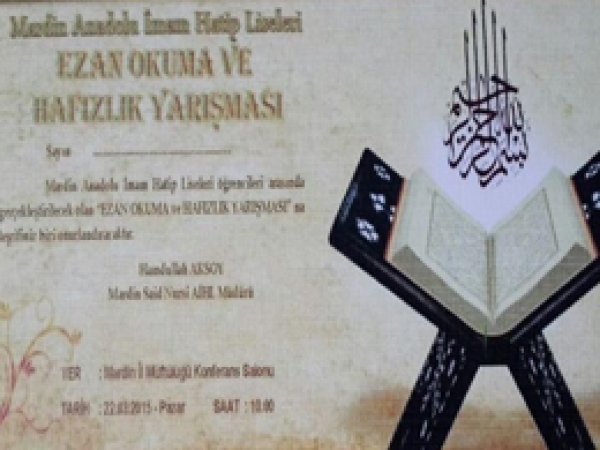 Mardin Anadolu İmam Hatip Liseleri
EZAN OKUMA VE
HAFIZLIK YARIŞMASI
Sayın
Mardin Anadolu İmam Hatip Liseleri öğrencileri arasında
gerçekleştirilecek olan "EZAN OKUMA ve HAFIZLIK YARIŞMASI" na
teşrifiniz bizi onurlandıracaktır.
Hamdullah AKSOY
Mardin Said Nursi AİHL Müdürü
YER : Mardin İl Müftülüğü Konferans Salonu
TARİH : 22.03.2015 - Pazar SAAT : 10.00
بسم الله الرحمن الرحيم